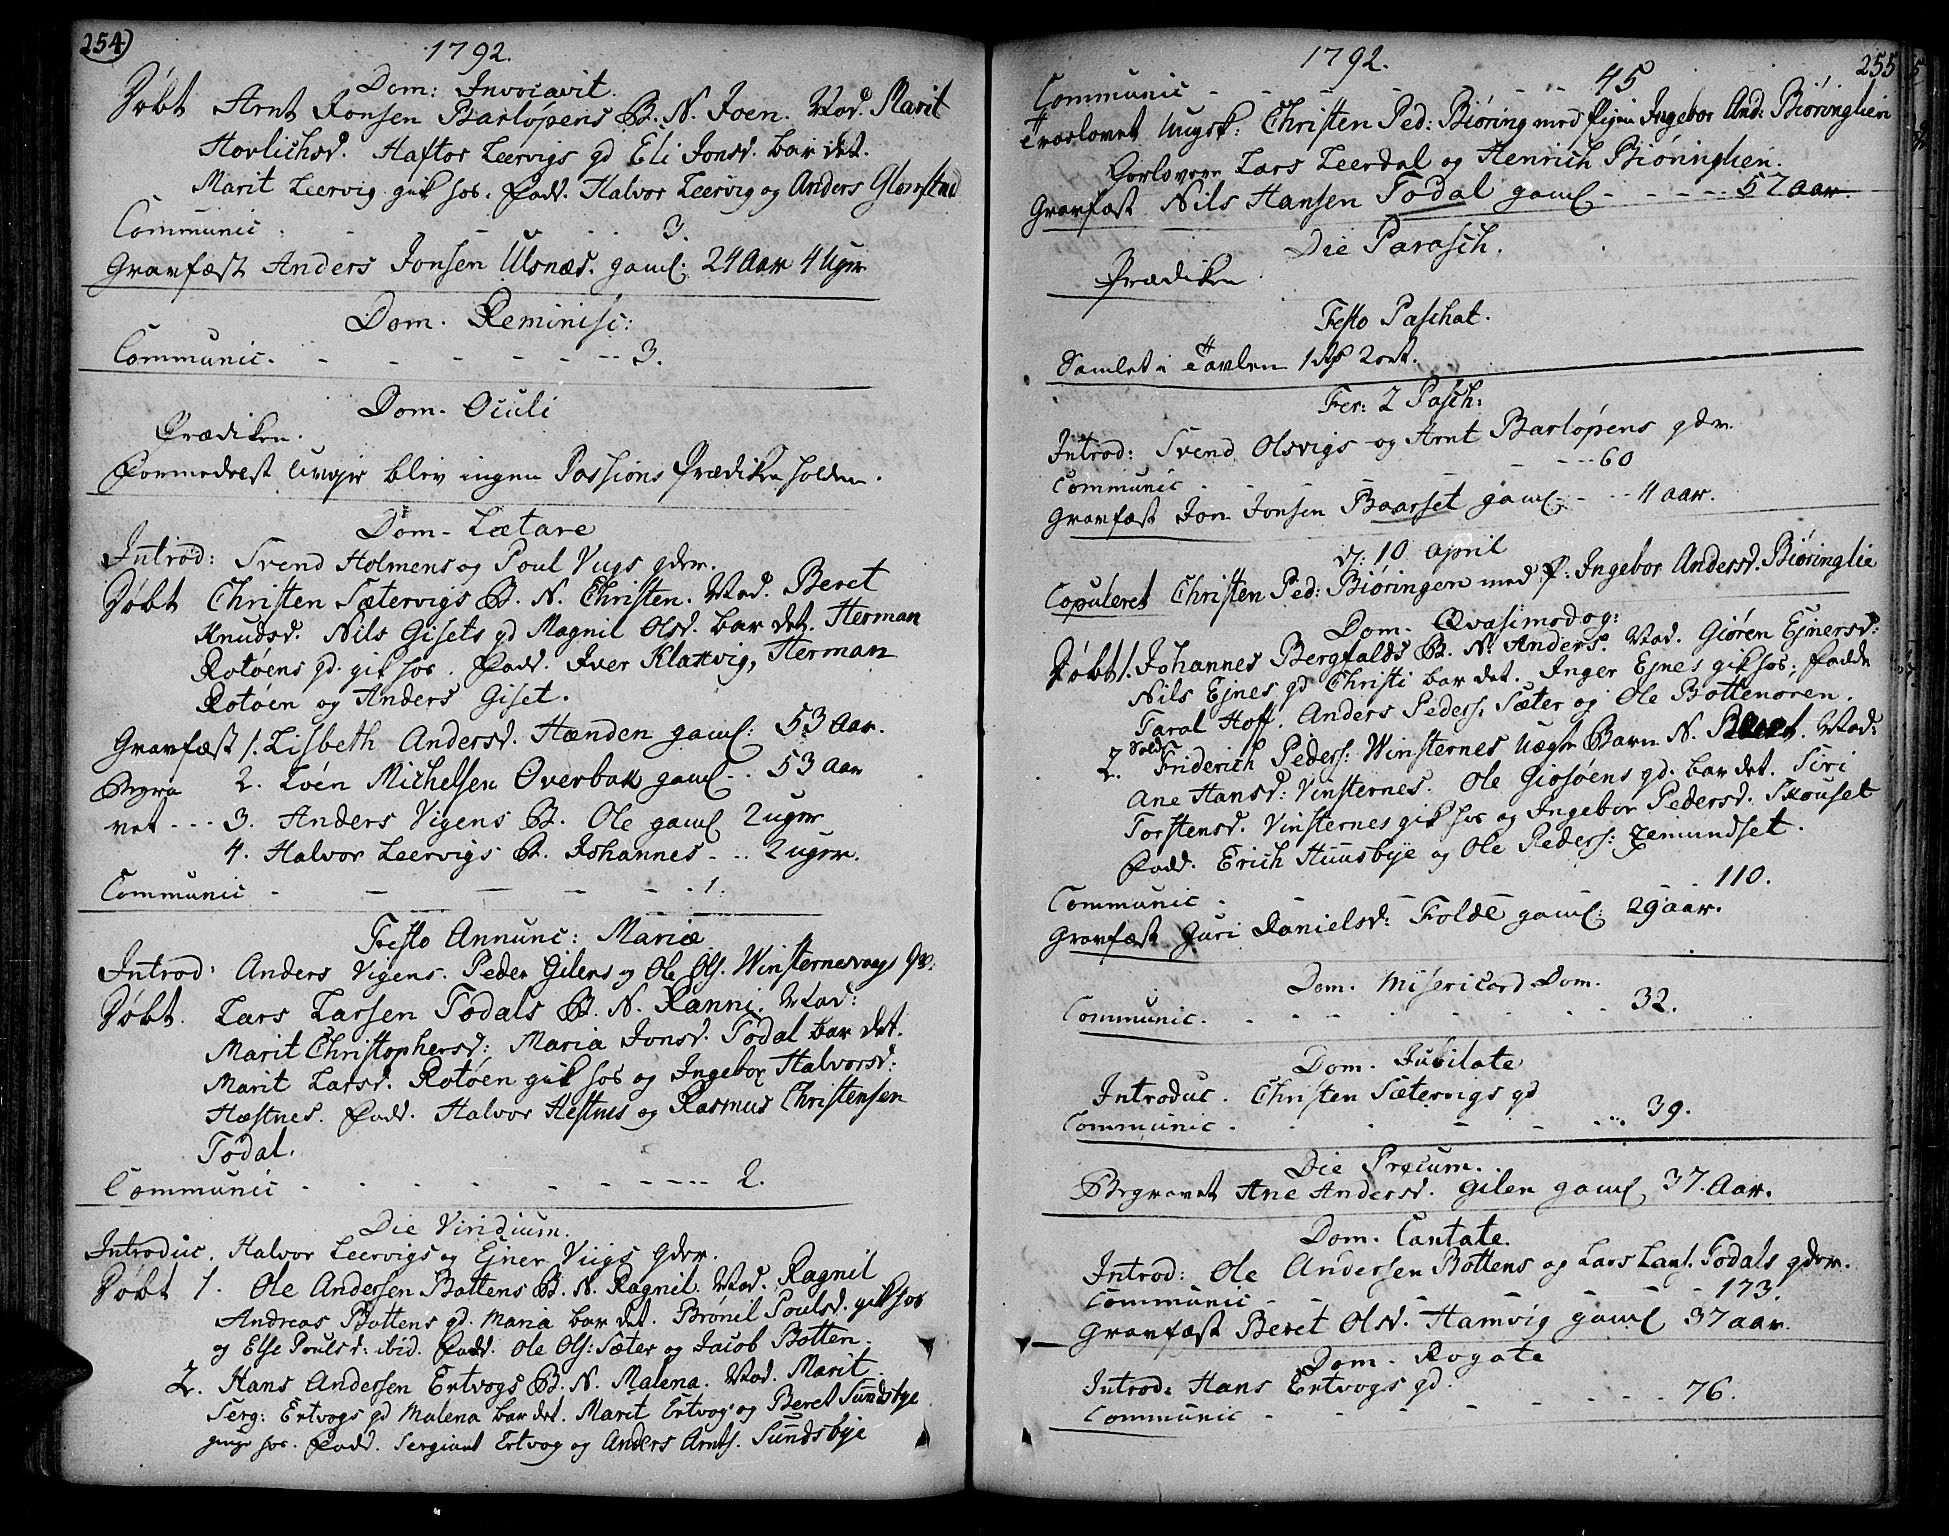 254)
1792.
Dom: Invocavit.
Døbt Arnt Jonsen Barløpens B. N. Joen. Mod. Marit
Horlichsd. Haftor Leervigs gd Eli Jonsd. bar det.
Marit Leervig gik hos. Fadd. Halvor Leervig og Anders
Communic : - - - 3.
Gravfæst Anders Jonsen Ulsnæs. gaml: 24 Aar 4 Uger
Dom. Reminisc:
Communic. - - - - - 3.
Dom. Oculi
Prædiken.
Formedelst blev ingen Passions Prædiken holden.
Dom. Lætare
Introd: Svend Holmens og Poul Vugs qdr.
Døbt Christen Sætervigs B. N. Christen. Mod. Beret
Knudsd. Nils Gisets gd Magnil Olsd. bar det. Herman
Rotøens gd. gik hos. Fadd. Iver Klakvig, Herman
Rotøen og Anders Giset.
Gravfæst 1. Lisbeth Andersd. Hænden gaml: 53 Aar.
Begra 2. Michelsen Overbakk gaml - 53 Aar
vet - - - 3. Anders Vigens B. Ole gaml 2 uger
4. Halvor Leervigs B. Johannes - - 2 uger.
Communic - - - - - 1.
Festo Annunc: Mariæ
Introd: Anders Vigens. Peder Gilens og Ole Ols. Winsternesvogs
Døbt. Lars Larsen Todals B. N. Ranni. Mod:
Marit Christophersd: Maria Jonsd. Todal bar det.
Marit Larsd. Rotøen gik hos og Ingebor Halvorsd:
Hæstnes. Fadd. Halvor Hestnes og Rasmus Christensen
Todal.
Communic - - - - - 2.
Die Viridium.
Introduc. Halvor Leervigs og Ejner Viigs qdr.
Døbt 1. Ole Andersen Bottens B. N. Ragnil. Mod. Ragnil
Andreas Bottens gd. Maria bar det. Brønil Poulsd. gik hos
og Else Poulsd: ibid. Fadd. Ole Ols: Sæter og Jacob Botten.
2. Hans Andersen Ertvogs B. N. Malena. Mod. Marit
Serg: Ertvogs gd Malena bar det. Marit Ertvog og Beret Sundsbye
hos. Fadd. Sergiant Ertvog og Anders Arnts. Sundsbye
255
1792.
Communic - - - - - 45
Trorlovet Ungk: Christen Ped: Biøring med Pigen Ingebor And: Biøringlien
Forlovere Lars Leerdal og Henrich Biøringlien.
Gravfæst Nils Hansen Todal gaml - - - - 57 aar.
Die Parasch.
Prædiken
Festo Paschat.
Samlet i Tavlen 1 rd 2 ort.
Fer: 2 Pasch:
Introd: Svend Olsvigs og Arnt Barløpens qdr.
Communic - - - - 60
Gravfæst Jon Jonsen Baarset gaml - - - 4 aar.
d: 10 April
Copuleret Christen Ped: Biøringen med P: Ingebor Andersd. Biøringlie
Dom. Qvasimodog:
Døbt 1. Johannes Bergfalds B. N. Anders. Mod. Giøren Ejnersd:
Nils Ejnes gd Christi bar det. Inger Ejnes gik hos: Fadde
Taral Hoff. Anders Peders: Sæter og Ole Bottenøren.
2. Sold. Friderich Peders: Winsternes Uægte Barn N. Mod:
Ane Hansd: Vinsternes. Ole Giøsøens gd. bar det. Siri
Torstensd. Vinsternes gik hos og Ingebor Pedersd. Skouset
Fadd. Erich Huusbye og Ole Peders: Jemundset.
Communic - - - - 110.
Gravfæst Guri Danielsd: Folde gaml: 29 aar.
Dom. Misericord. Dom.
Communic. - - - - - 32.
Dom. Jubilate
Introduc. Christen Sætervigs gd
Communic - - - - - 39.
Die Precum.
Begravet Ane Andersd. Gilen gaml 37. Aar.
Dom. Cantate.
Introd: Ole Andersen Bottens og Lars Lars. Todals qdr.
Communic - - - - - 173.
Gravfæst Beret Olsd. Hamvig gaml 37 aar.
Dom. Rogate
Introd: Hans Ertvogs gd.
Communic - - - - - 76.